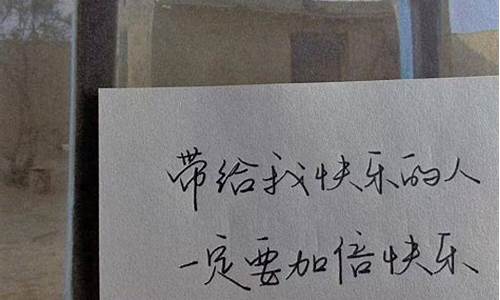 带给我快乐的人
一定要加倍快乐